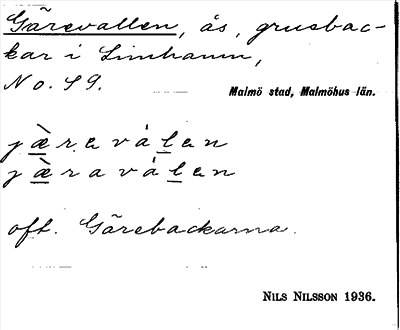 Gärevallen, ås, grusbac-
kar i Limhamn,
No. 49.
Malmö stad, Malmöhus län.
jæ̀raválen
jæ̀raválen
oft. Gärebackarna.
NILS NILSSON 1936.